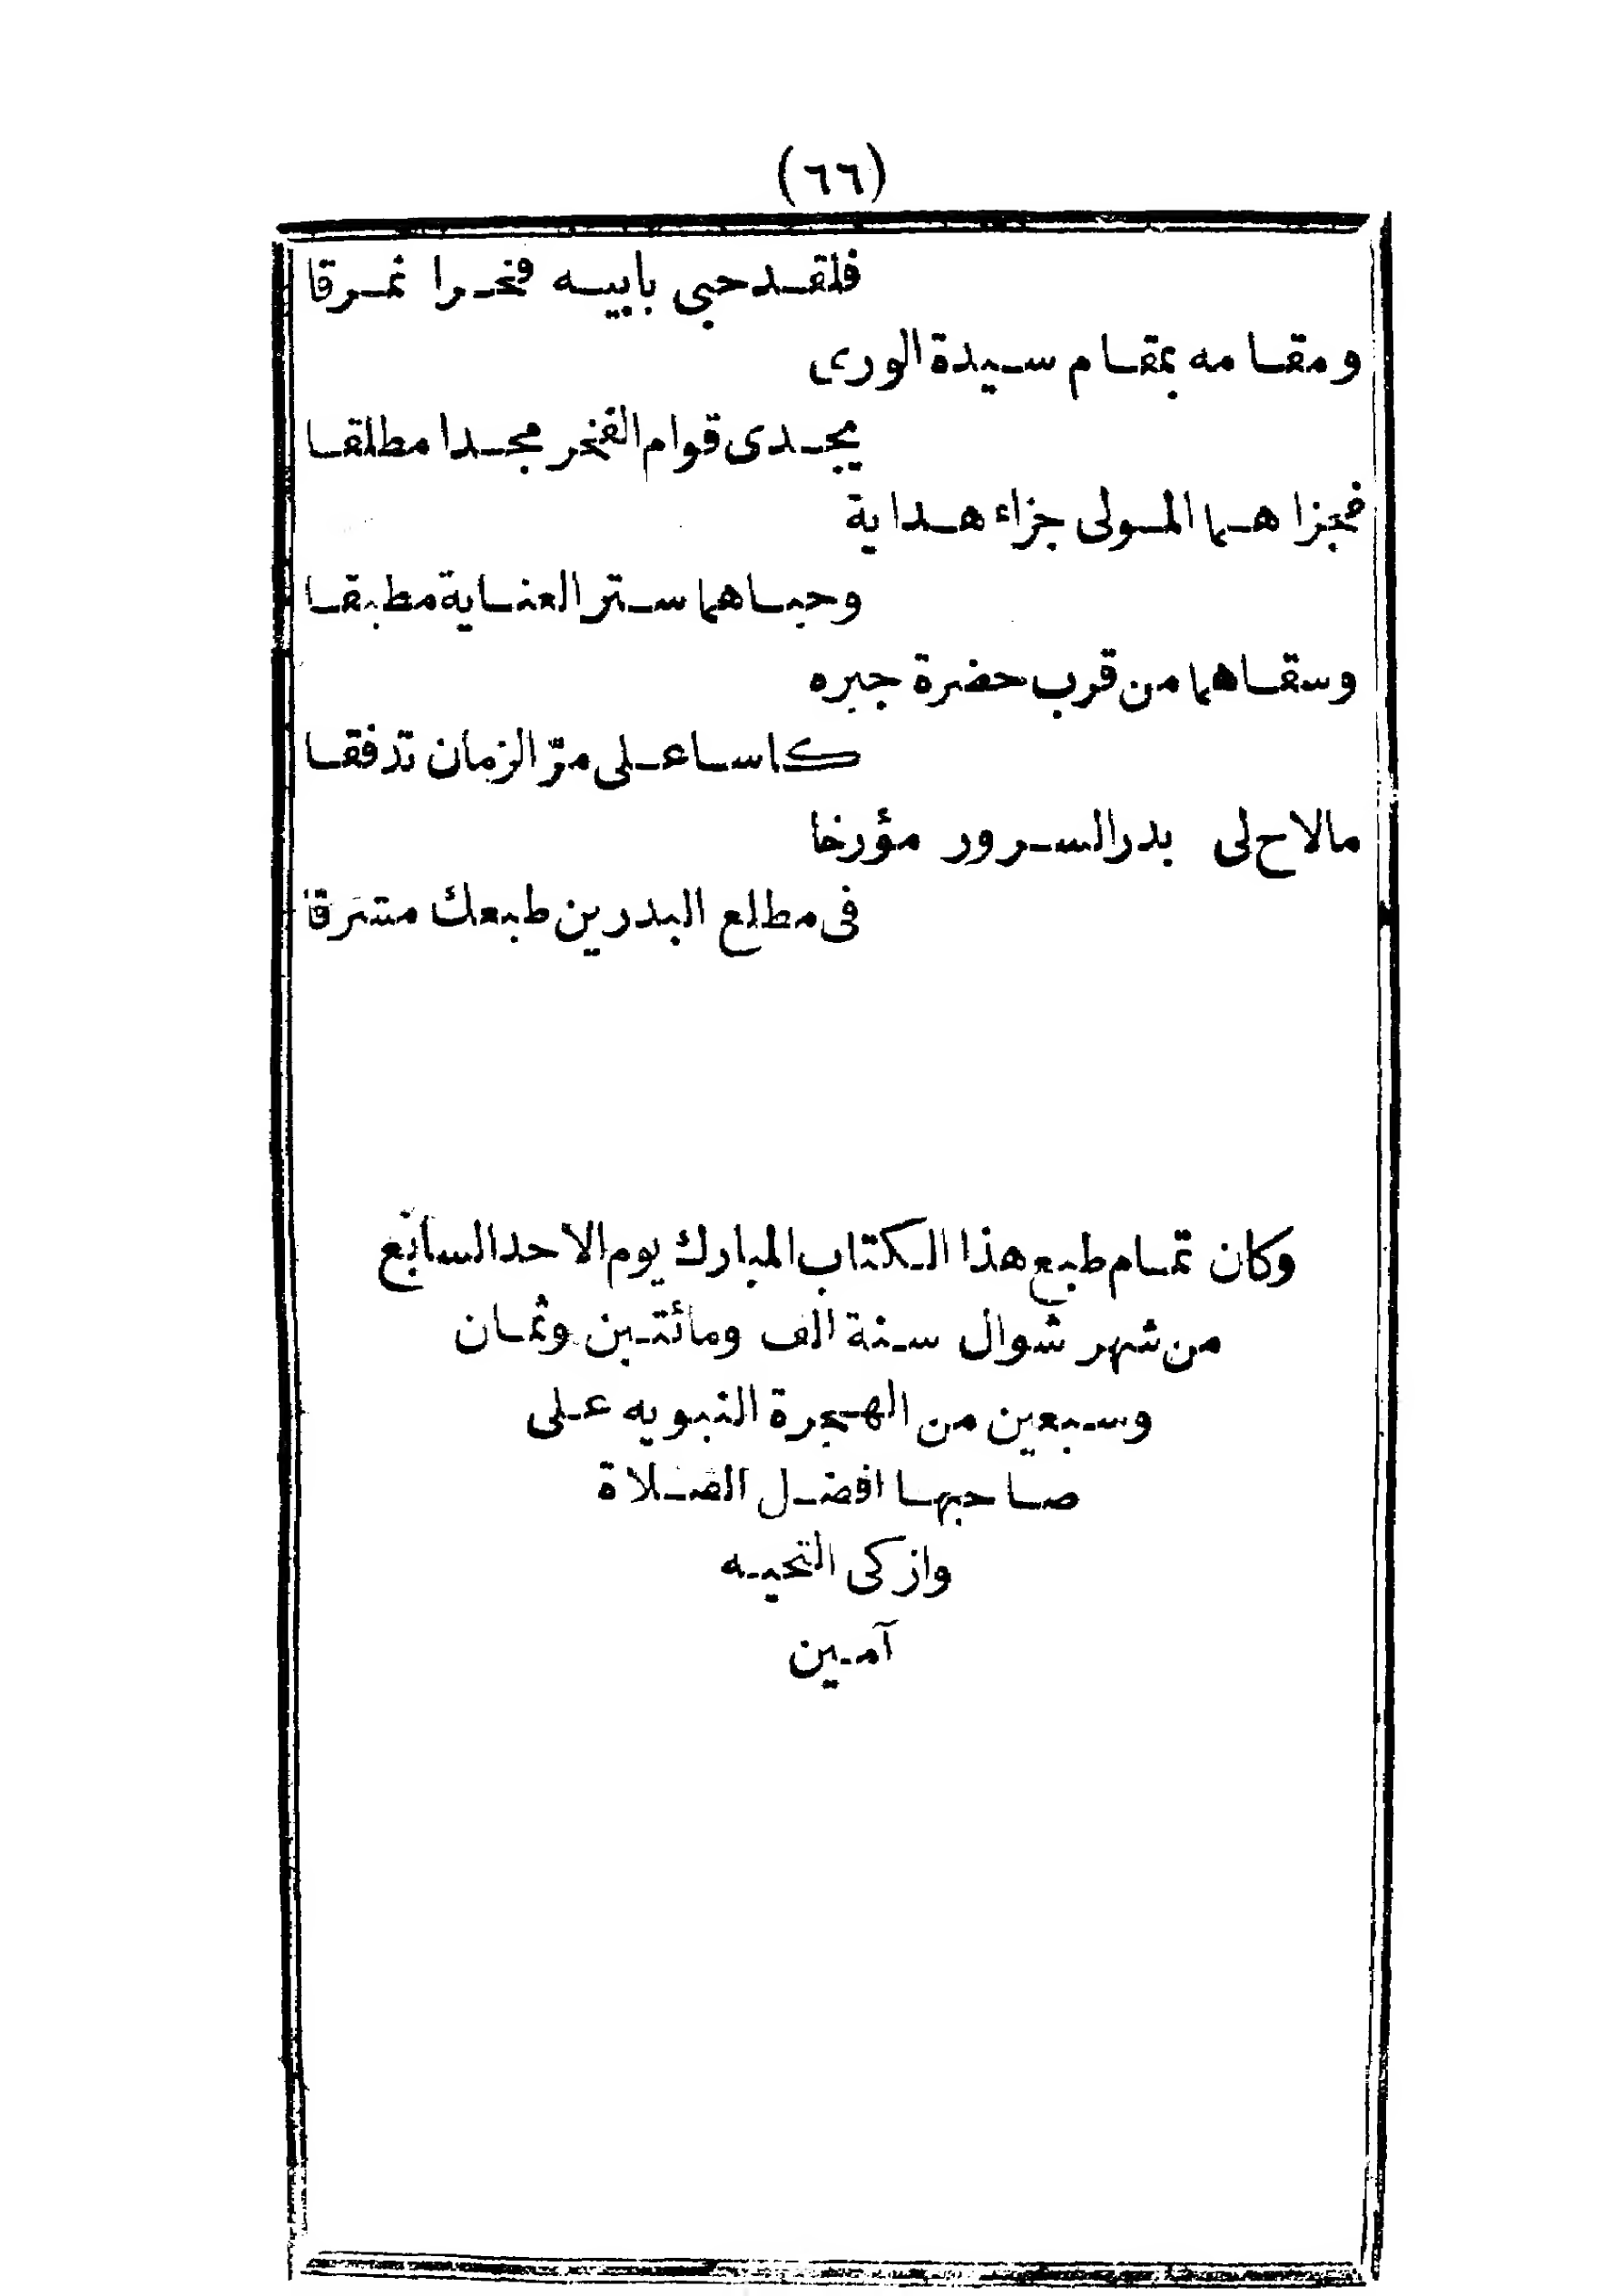 (٦٦)
فلقد حبى بابيه فخرا نمرقا
ومقامه بمقام سيدة الورى
يجدى قوام الفخر مجدا مطلقا
فجزاهما المولى جزاء هداية
وحباهما ستر العناية مطبقا
وسقاهما من قرب حضرة جبره
كاسا على مرّ الزمان تدفقا
مالاح لى بدر السرور مؤرخا
فى مطلع البدرين طبعك مشرقا
وكان تمام طبع هذا الكتاب المبارك يوم الاحد السابع
من شهر شوال سنة الف ومائتين وثمان
وسبعين من الهجرة النبويه على
صاحبها افضل الصلاة
وازكى التحيه
آمين